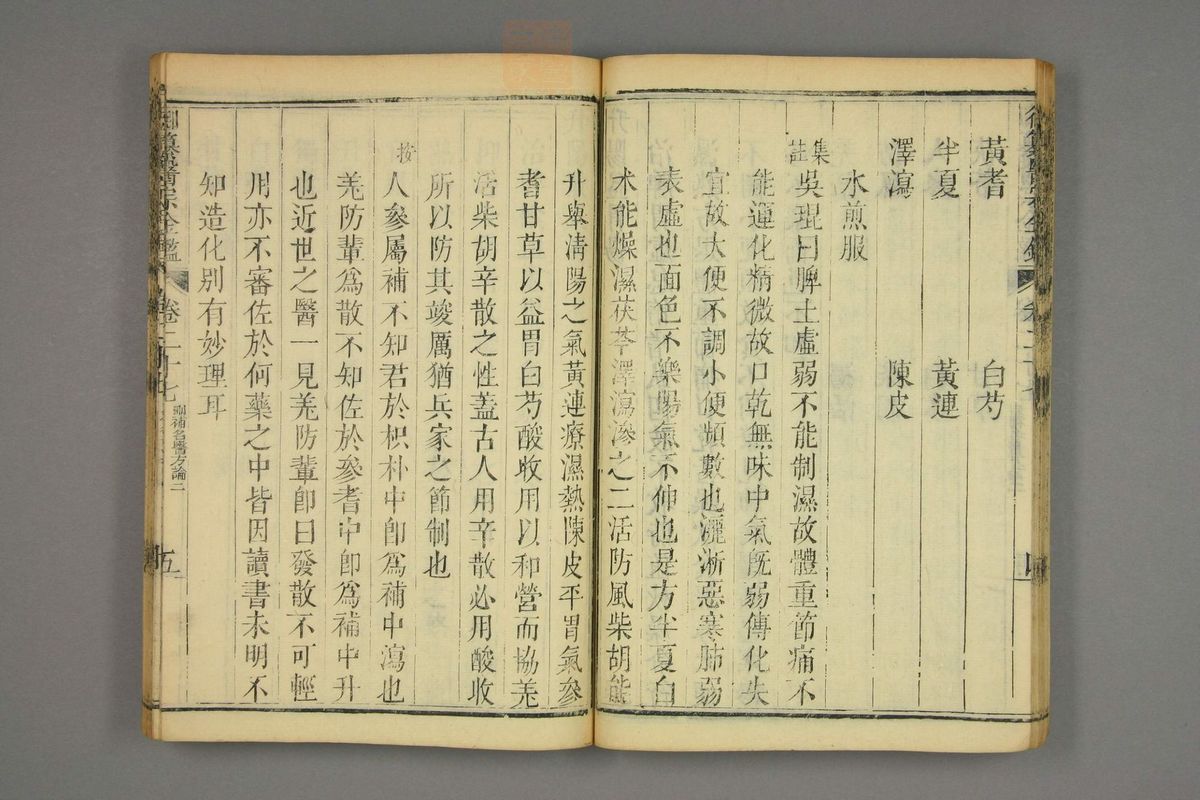 黃耆 白芍
半夏 黃連
澤瀉 陳皮
水煎服
集註
吳琨曰脾土虛弱不能制濕故體重節痛不
能運化精微故口乾無味中氣旣弱傳化失
宜故大便不調小便頻數也灑淅惡寒肺弱
表虛也面色不樂陽氣不伸也是方半夏白
术能燥濕茯苓澤瀉滲之二活防風柴胡能
升舉淸陽之氣黃連療濕熱陳皮平胃氣參
耆甘草以益胃白芍酸收用以和營而協羌
活柴胡辛散之性蓋古人用辛散必用酸收
所以防其峻厲猶兵家之節制也
按
人參屬補不知君於枳朴中卽爲補中瀉也
羌防輩爲散不知佐於參耆中卽爲補中升
也近世之醫一見羌防輩卽曰發散不可輕
用亦不審佐於何藥之中皆因讀書未明不
知造化別有妙理耳
御纂醫宗金鑑 卷二十七 刪補名醫方論二 五